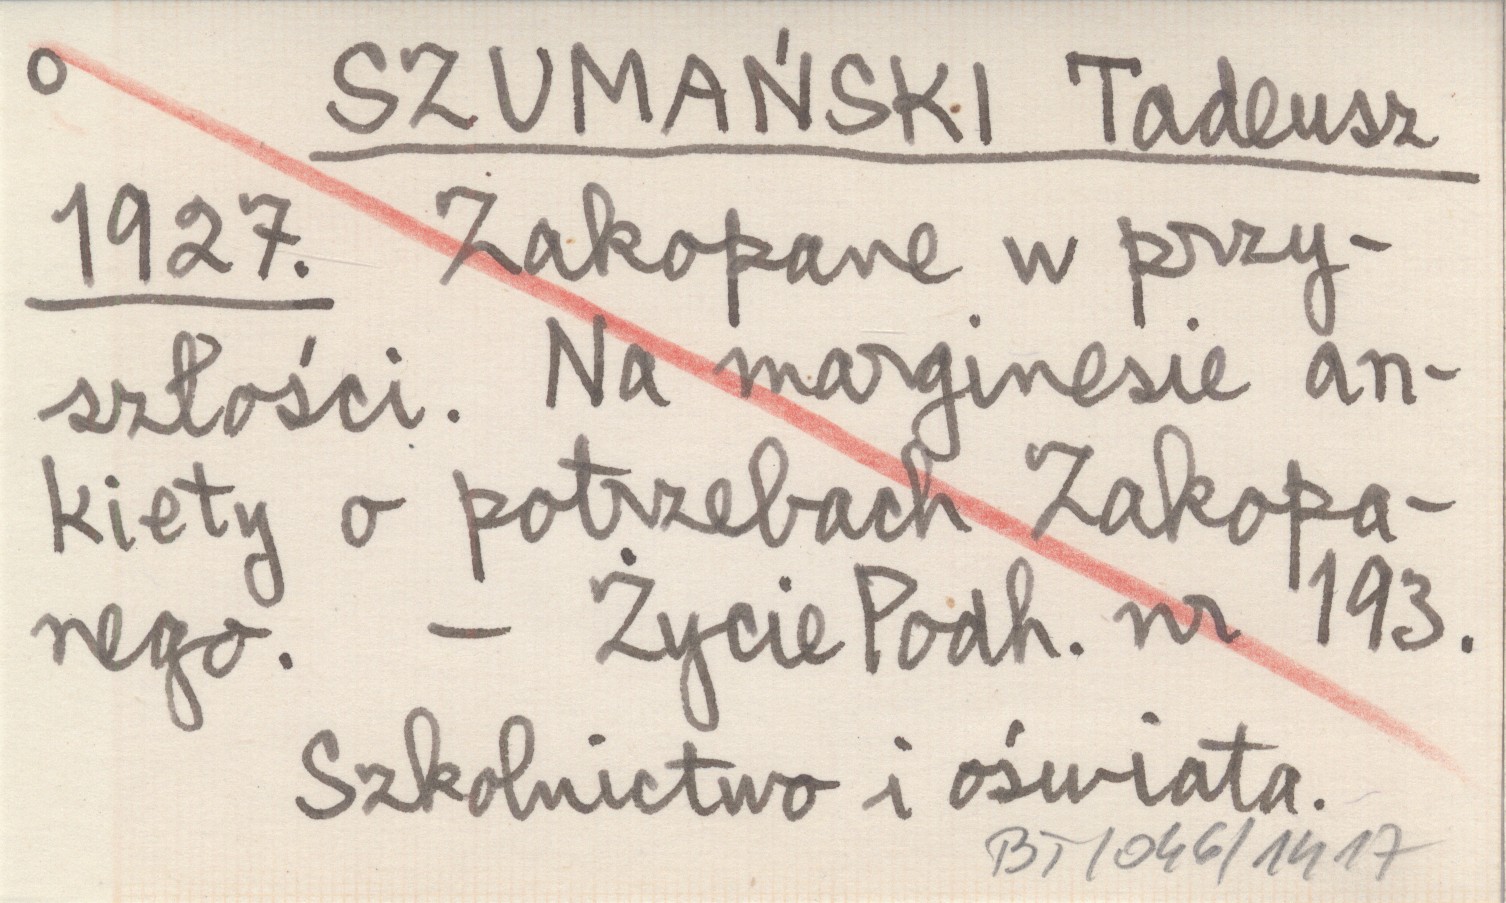 o SZUMAŃSKI Tadeusz
1927. Zakopane w przy-
szłości. Na marginesie an-
kiety o potrzebach Zakopa-
nego. – Życie Podh. nr 193.
Szkolnictwo i oświata.
BT/046/1417